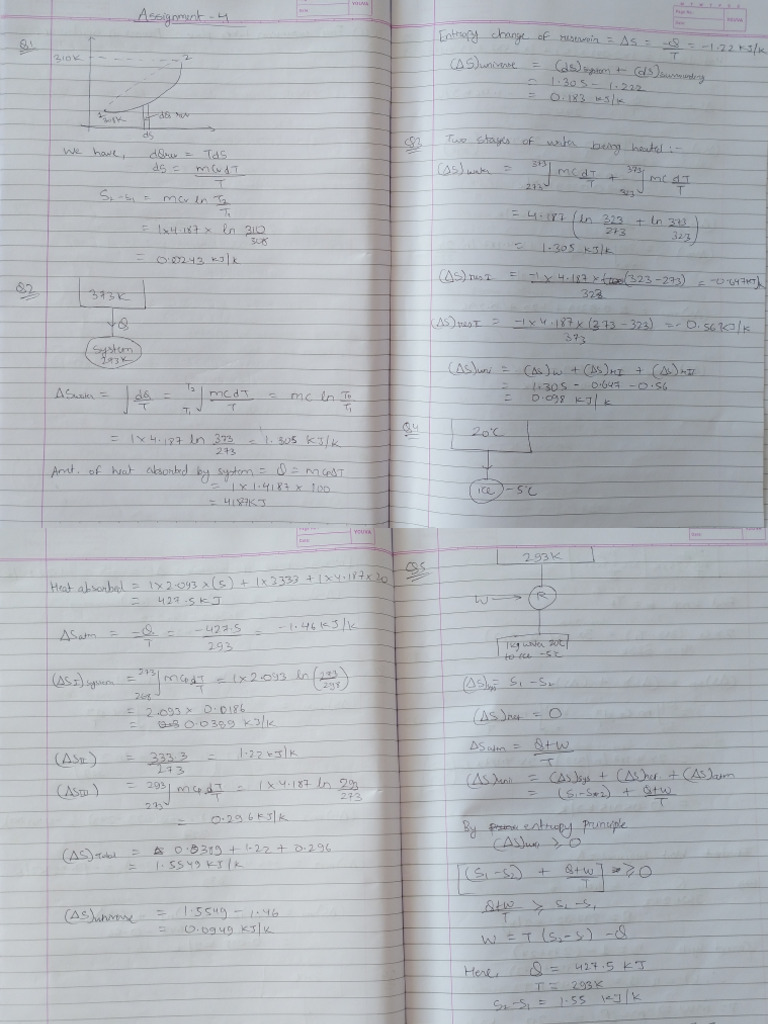 Assignment - 4
Q1
310K
2
1
dQ rev
ds
We have, dQrev = Tds
ds = mcvdT / T
S2-S1 = mcv ln T2/T1
= 1x4.187 x ln 310/308
= 0.0243 KJ/K
Q2
373K
Q
System
273K
ΔSwater = ∫ dQ/T = T1∫T2 mcdT/T = mc ln T2/T1
= 1x4.187 ln 373/273 = 1.305 KJ/K
Amt. of heat absorbed by system = Q = mcpdT
= 1x1.4187 x 100
= 4187KJ
Entropy change of reservoir = ΔS = -Q/T = -1.22 KJ/K
(ΔS)universe = (ds)system + (ds)surrounding
= 1.305 - 1.222
= 0.183 KJ/K
Q3 Two stages of water being heated :-
(ΔS)water = 273∫373 mcdT/T + 323∫373 mcdT/T
= 4.187 (ln 323/273 + ln 373/323)
= 1.305 KJ/K
(ΔS)res I = -1 x 4.187 x (323-273) / 323 = -0.647KJ/K
(ΔS)res I = -1x4.187x(373-323) / 373 = -0.56KJ/K
(ΔS)uni = (ΔS)w + (ΔS)rI + (ΔS)rII
= 1.305 - 0.647 - 0.56
= 0.098 KJ/K
Q4
20°C
ice -5°C
Heat absorbed = 1x2.093x(5) + 1x333 + 1x4.187x20
= 427.5KJ
ΔSatm = -Q/T = -427.5/293 = -1.46 KJ/K
(ΔSI)system = 268∫273 mcpdT/T = 1x2.093 ln(273/268)
= 2.093 x 0.0186
= 0.0389 KJ/K
(ΔSII) = 333.3/273 = 1.22 KJ/K
(ΔSIII) = 273∫293 mcpdT/T = 1x4.187 ln 293/273
= 0.296KJ/K
(ΔS)Total = 0.0389 + 1.22 + 0.296
= 1.5549 KJ/K
(ΔS)universe = 1.5549 - 1.46
= 0.0949 KJ/K
Q5
293K
W
R
1kg water 20°C
to ice -5°C
(ΔS)sys = S1 - S2
(ΔS)ref = 0
ΔSatm = Q+W / T
(ΔS)uni = (ΔS)sys + (ΔS)ref + (ΔS)atm
= (S1-S2) + Q+W / T
By entropy principle
(ΔS)uni ≥ 0
(S1-S2) + Q+W / T ≥ 0
Q+W / T ≥ S2-S1
W = T (S2-S1) - Q
Here, Q = 427.5 KJ
T = 293K
S2-S1 = 1.55 KJ/K